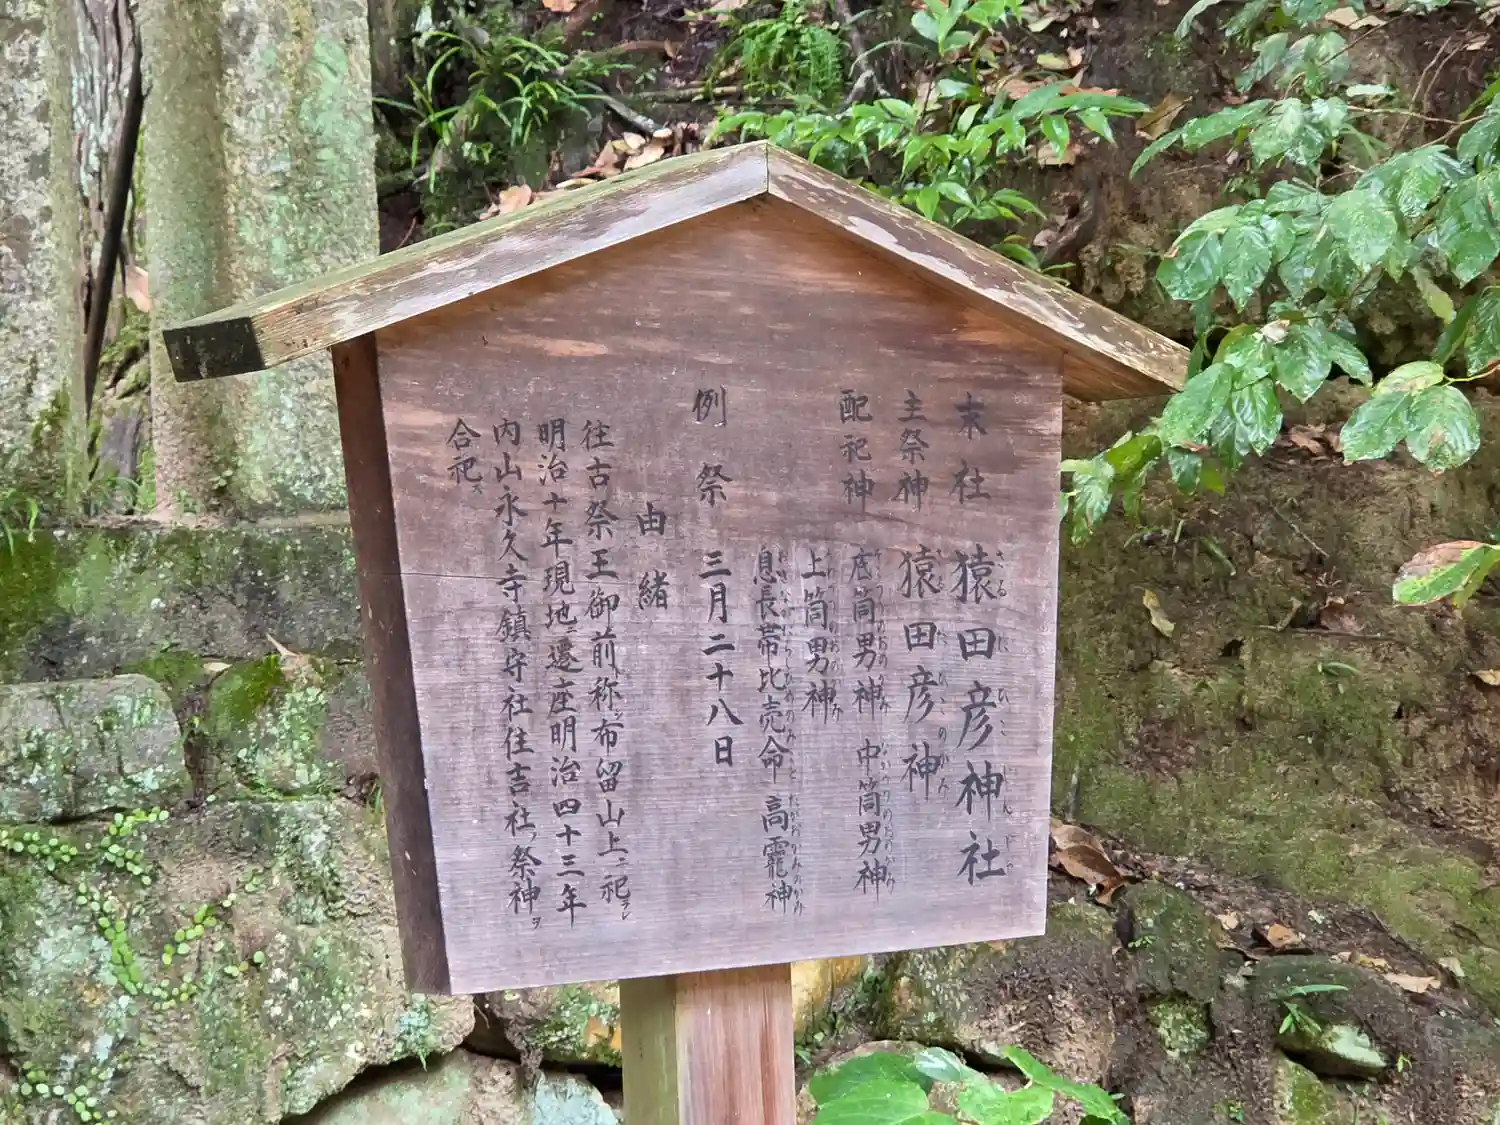 末社 猿田彦神社
主祭神 猿田彦神
配祀神 底筒男神 中筒男神
上筒男神
息長帯比売命 高靇神
例祭 三月二十八日
由緒
往古祭王御前ト称シ布留山上ニ祀ラレ
明治十年現地ニ遷座明治四十三年
内山永久寺鎮守社住吉社ノ祭神ヲ
合祀ス